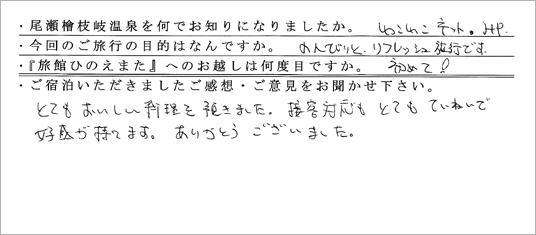 ・尾瀬檜枝岐温泉を何でお知りになりましたか。 ゆこゆこネット。HP.
・今回のご旅行の目的はなんですか。 のんびりと、リフレッシュ旅行です。
・『旅館ひのえまた』へのお越しは何度目ですか。 初めて!
・ご宿泊いただきましたご感想・ご意見をお聞かせ下さい。
とてもおいしい料理を頂きました。接客対応もとてもていねいで
好感が持てます。ありがとうございました。